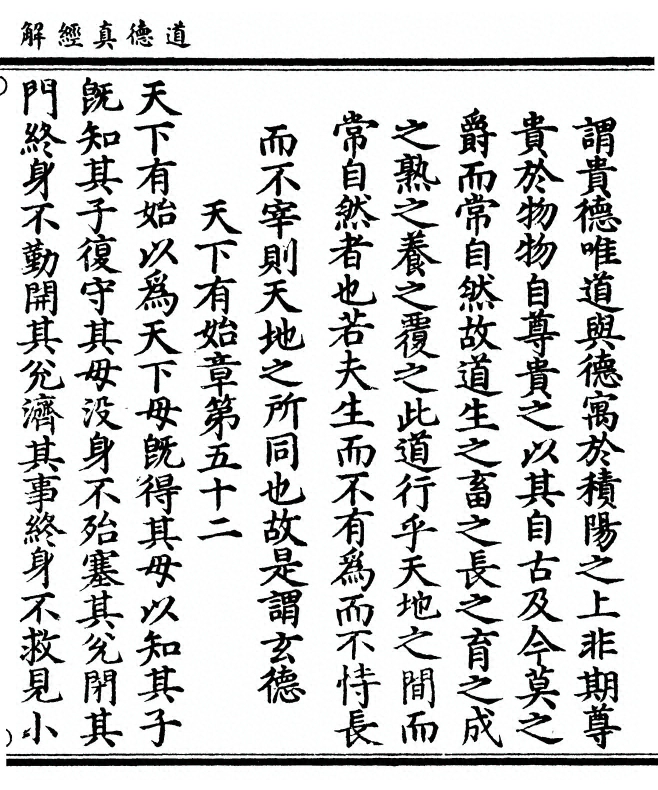 道德真經解
謂貴德唯道與德寓於積陽之上非期尊
貴於物物自尊貴之以其自古及今莫之
爵而常自然故道生之畜之長之育之成
之熟之養之覆之此道行乎天地之間而
常自然者也若夫生而不有為而不恃長
而不宰則天地之所同也故是謂玄德
天下有始章第五十二
天下有始以為天下母既得其母以知其子
既知其子復守其母没身不殆塞其兊閉其
門終身不勤開其兊濟其事終身不救見小